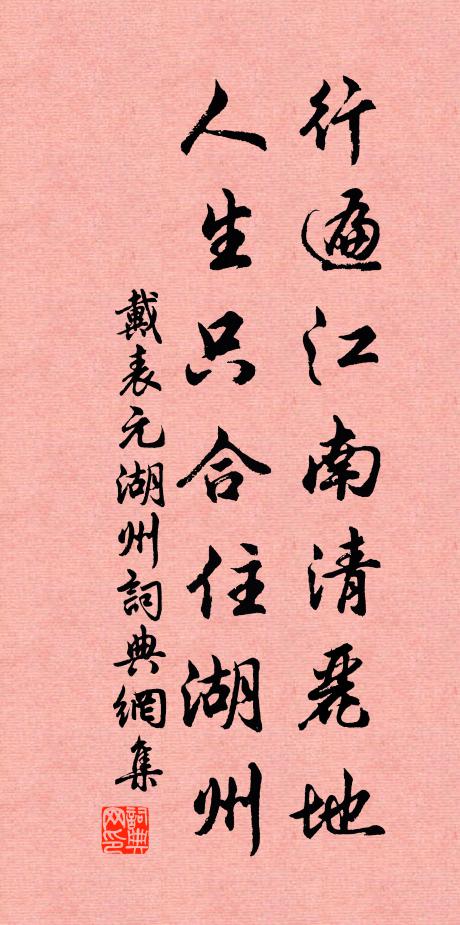 行遍江南清麗地
人生只合住湖州
戴表元湖州詞典網集
詞典网印